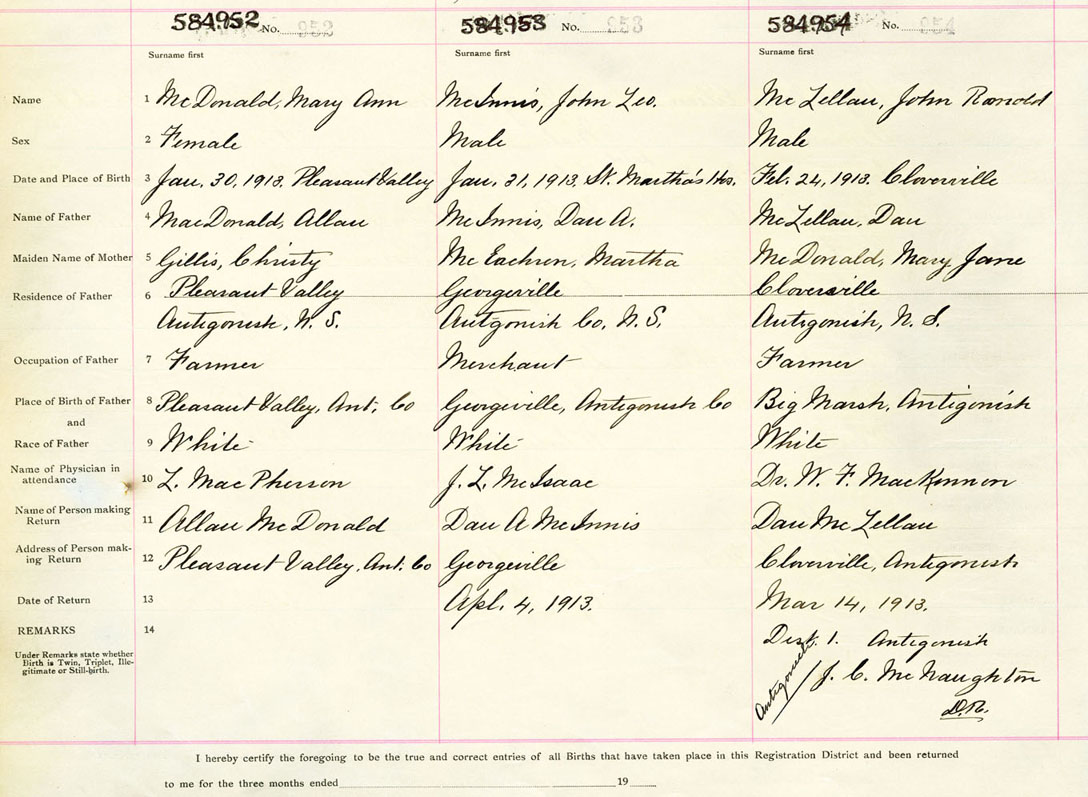 584952 No. 952 584953 No. 953 584954 No. 954
Surname first Surname first Surname first
Name 1 McDonald, Mary Ann McInnis, John Leo. McLellan, John Ronold
Sex 2 Female Male Male
Date and Place of Birth 3 Jan. 30, 1913. Pleasant Valley Jan. 31, 1913. St. Martha's Hos. Feb. 24, 1913. Cloverville
Name of Father 4 MacDonald, Allan McInnis, Dan A. McLellan, Dan
Maiden Name of Mother 5 Gillis, Christy McEachren, Martha McDonald, Mary Jane
Residence of Father 6 Pleasant Valley Georgeville Cloverville
Antigonish, N. S. Antgonish Co, N. S. Antigonish, N. S.
Occupation of Father 7 Farmer Merchant Farmer
Place of Birth of Father 8 Pleasant Valley, Ant, Co Georgeville, Antigonish Co Big Marsh, Antigonish
and
Race of Father 9 White White White
Name of Physician in
attendance 10 L. MacPherson J. L. McIsaac Dr. W. F. MacKinnon
Name of Person making
Return 11 Allan McDonald Dan A McInnis Dan McLellan
Address of Person mak-
ing Return 12 Pleasant Valley, Ant. Co Georgeville Cloverville, Antigonish
Date of Return 13 Apl. 4, 1913. Mar 14, 1913.
REMARKS 14 Dist. 1. Antigonish
Under Remarks state whether
Birth is Twin, Triplet, Ille-
gitimate or Still-birth.
Antigonish / J. C. McNaughton
D.R.
I hereby certify the foregoing to be the true and correct entries of all Births that have taken place in this Registration District and been returned
to me for the three months ended 19